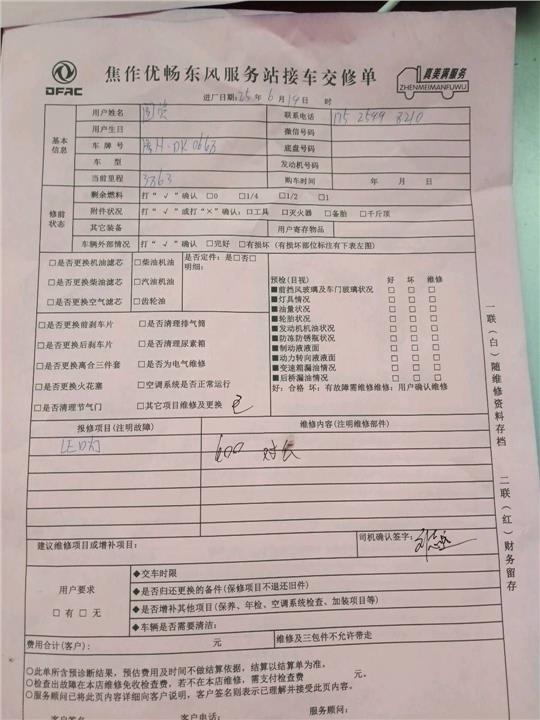 DFAC
焦作优畅东风服务站接车交修单
真美满服务
ZHENMEIMANFUWU
进厂日期:25年6月19日 时
基本信息
用户姓名
联系电话
用户生日
微信号码
车牌号
底盘号码
车型
发动机号码
当前里程 3363
购车时间 年 月 日
修前状态
剩余燃料 打“√”确认 □0 □1/4 □1/2 □1
附件状况 打“√”或打“×”确认:□工具 □灭火器 □备胎 □千斤顶
其它装备
用户寄存物品
车辆外部情况 打“√”确认 □完好 □有损坏(有损坏部位标注有下表左图)
□是否更换机油滤芯 □柴油机油 是否定件:是□否□
明细:
□是否更换柴油滤芯 □汽油机油
□是否更换空气滤芯 □齿轮油
□是否更换前刹车片 □是否清理排气筒
□是否更换后刹车片 □是否清理尿素箱
□是否更换离合三件套 □是否为电气维修
□是否更换火花塞 □空调系统是否正常运行
□是否清理节气门 □其它项目维修及更换
预检(目视) 好 坏 维修
■前挡风玻璃及车门玻璃状况 □ □ □
■灯具情况 □ □ □
■油量状况 □ □ □
■轮胎状况 □ □ □
■发动机机油状况 □ □ □
■防冻防锈瓶状况 □ □ □
■制动液液面 □ □ □
■动力转向液液面 □ □ □
■变速箱漏油情况 □ □ □
■后桥漏油情况 □ □ □
好:合格 坏:有故障需维修维修:用户确认维修
报修项目(注明故障)
维修内容(注明维修部件)
LED灯
600
建议维修项目或增补项目:
司机确认签字:
用户要求
□有 □无
◆交车时限
◆是否归还更换的备件(保修项目不退还旧件)
◆是否增补其他项目(保养、年检、空调系统检查、加装项目等)
◆车辆是否需要清洁:
费用合计(客户): 元
维修及三包件不允许带走
○此单所含预诊断结果,预估费用及时间不做结算依据,结算以结算单为准。
○检查出故障在本店维修免收检查费,若不在本店维修,需支付检查费 元。
○服务顾问已将此页内容详细向客户说明,客户签名则表示已理解并接受此页内容。
客户签名 客户电话: 服务顾问:
一联(白)随维修资料存档
二联(红)财务留存